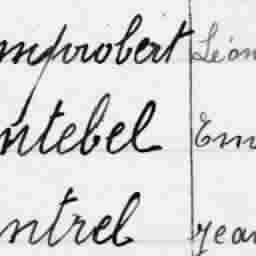 mprobert Léon
ntebel Em
ntrel Jean